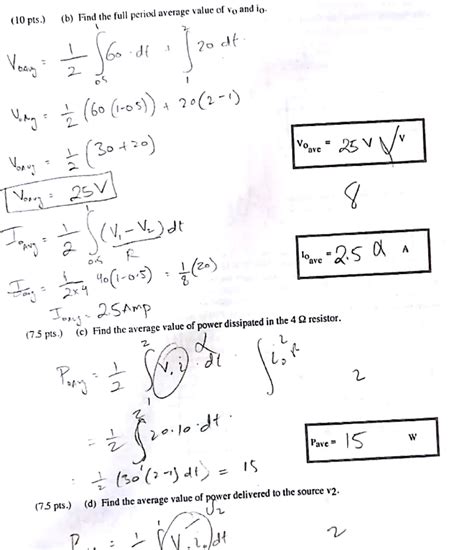 (10 pts.) (b) Find the full period average value of vo and io.
Voavg = 1/2 ∫ 60 · dt + ∫ 20 dt.
0.5 1 1 2
Voavg = 1/2 (60 (1-0.5)) + 20(2-1)
Voavg = 1/2 (30+20)
Voavg = 25V
Voave = 25 V V
8
Ioavg = 1/2 ∫ (V1 - V2) dt
0.5 1 R
Iavg = 1/2x4 40(1-0.5) = 1/8 (20)
Ioave = 2.5 A
Ioavg = 2.5Amp
(7.5 pts.) (c) Find the average value of power dissipated in the 4 Ω resistor.
Pavg = 1/2 ∫ V.i dt ∫ io² R
2
= 1/2 ∫ 20.10.dt.
Pave = 15 W
1/2 (30 (2-1) dt) = 15
(7.5 pts.) (d) Find the average value of power delivered to the source v2.
V2
= 1/2 ∫ (V.io) dt
2